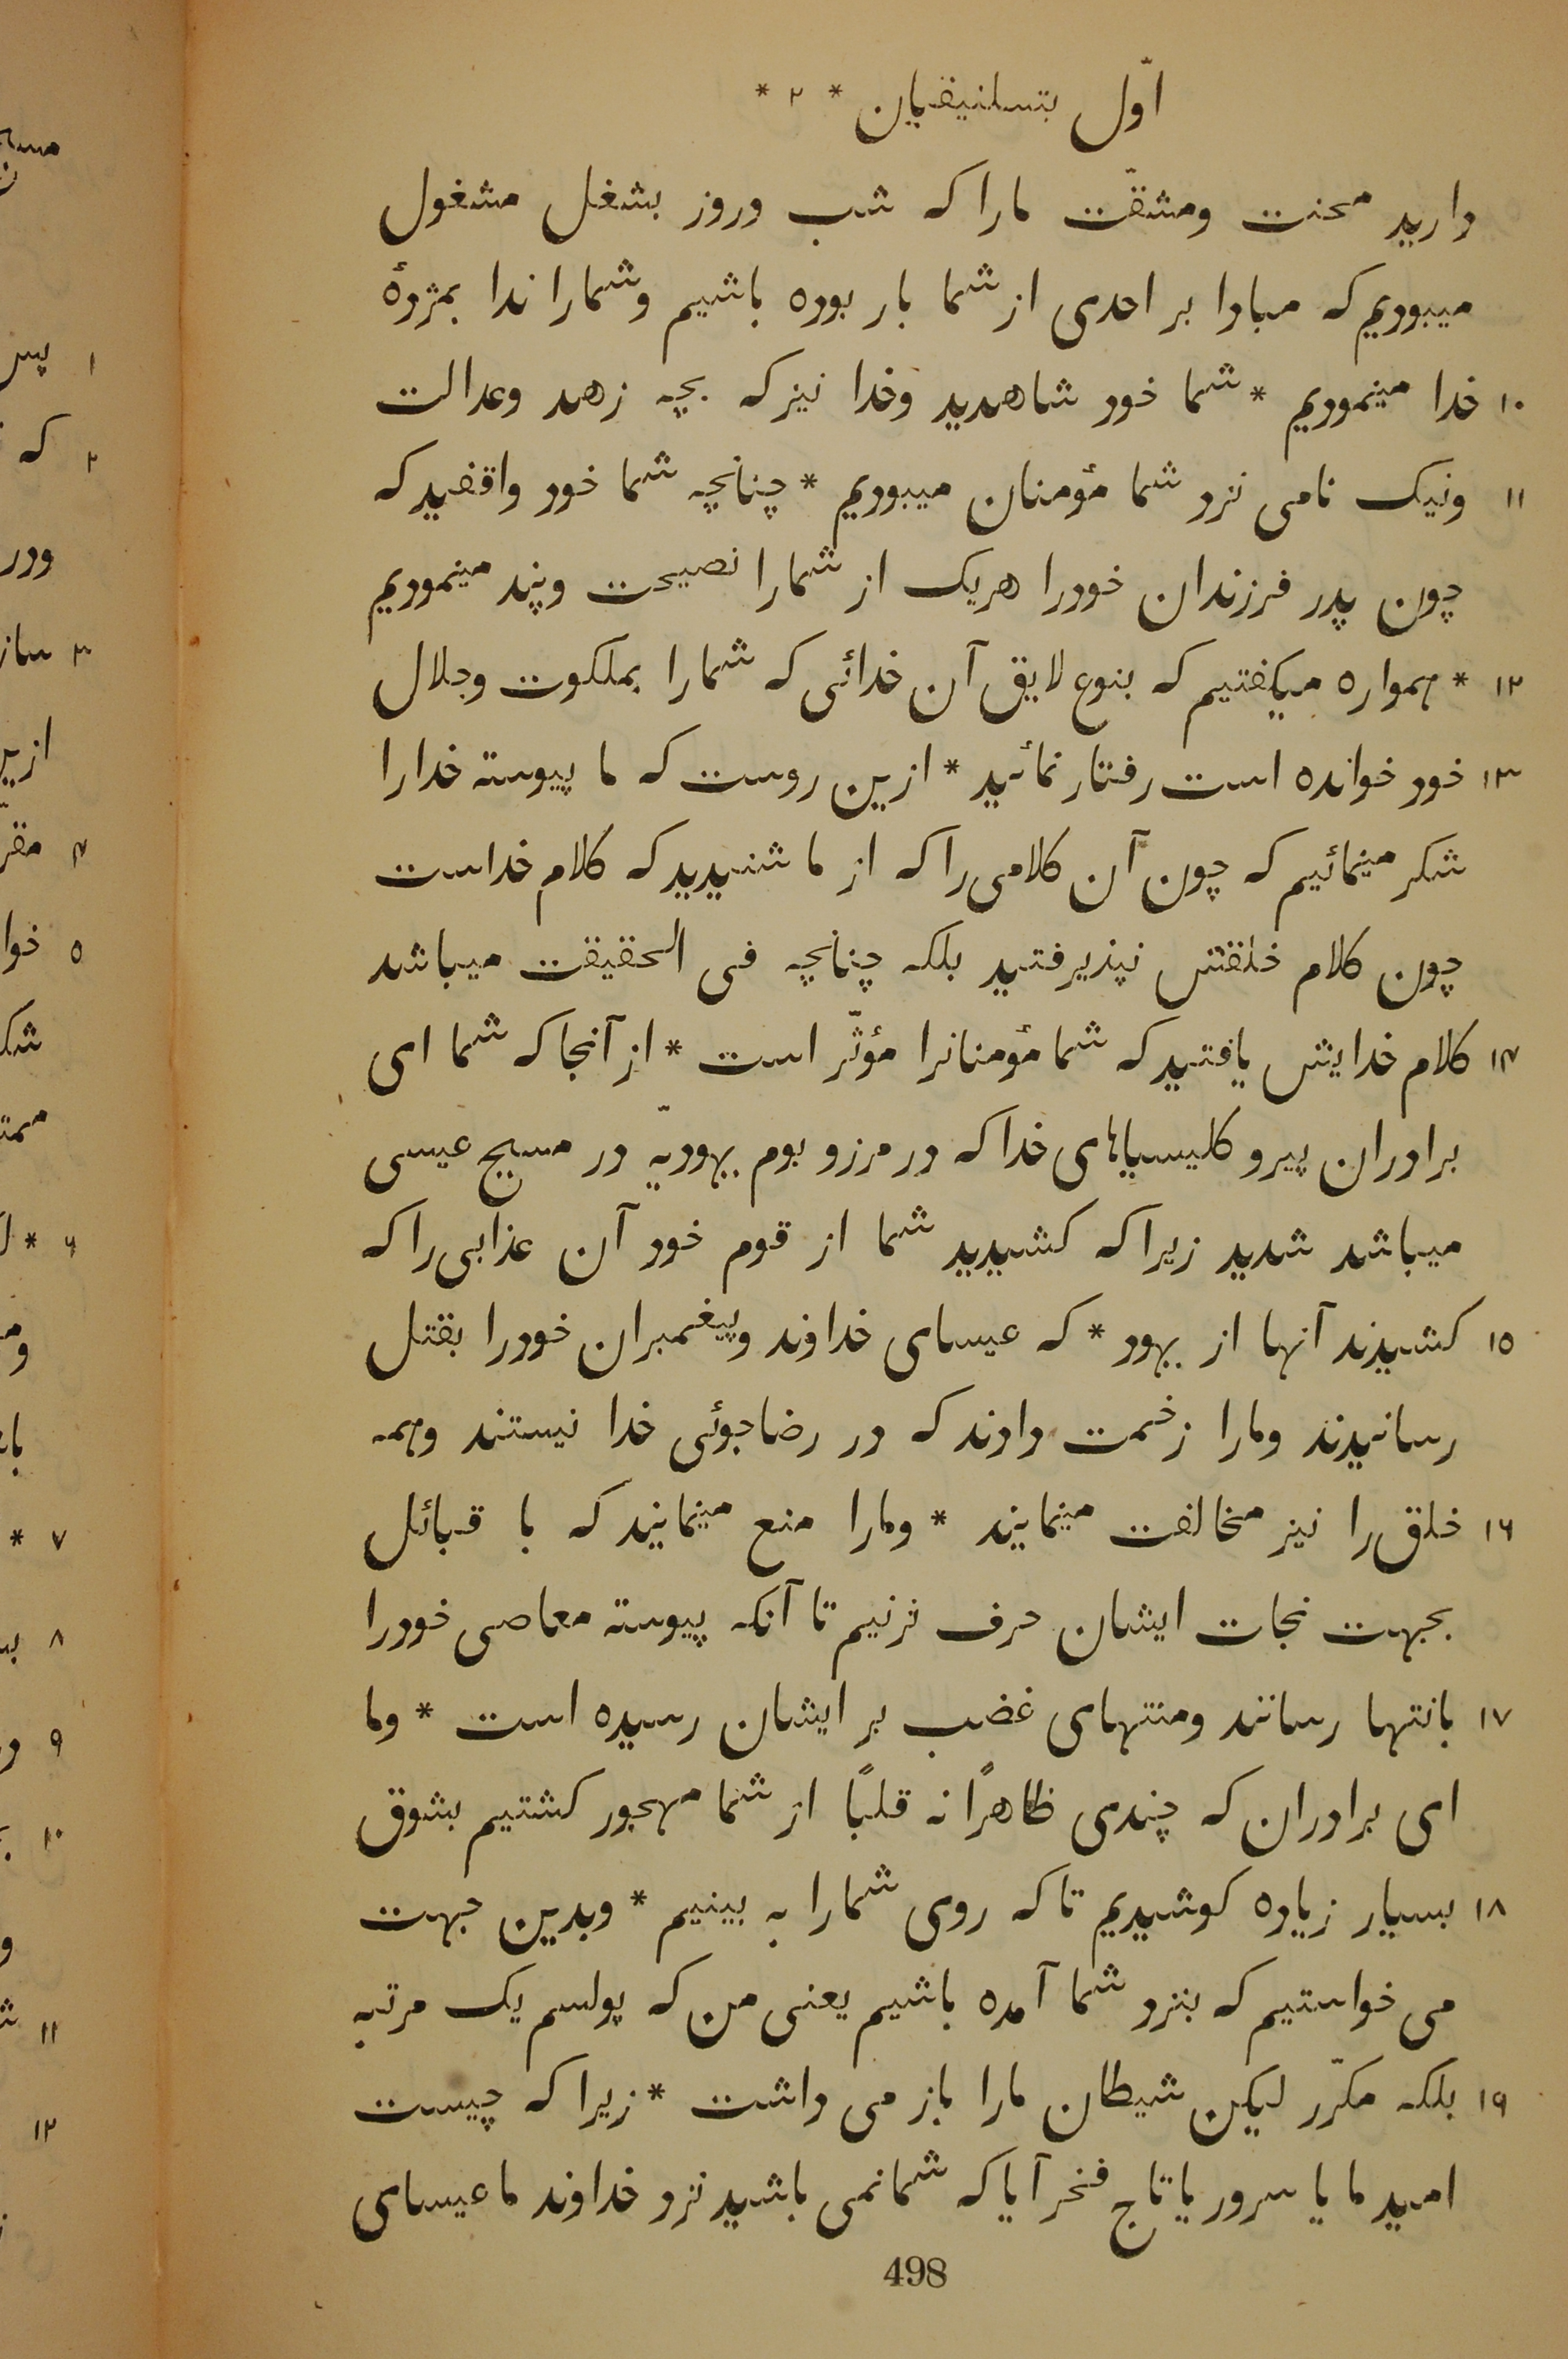 اوّل بتسلنیقیان * ۲ *
دارید محنت ومشقّت مارا که شب وروز بشغل مشغول
میبودیم که مبادا بر احدی از شما بار بوده باشیم وشمارا ندا بمژدهٔ
۱۰ خدا مینمودیم * شما خود شاهدید وخدا نیز که بچه زهد وعدالت
۱۱ ونیک نامی نزد شما مؤمنان میبودیم * چنانچه شما خود واقفید که
چون پدر فرزندان خودرا هریک از شمارا نصیحت وپند مینمودیم
۱۲ * همواره میکفتیم که بنوع لایق آن خدائی که شما را بملکوت وجلال
۱۳ خود خوانده است رفتار نمائید * ازین روست که ما پیوسته خدارا
شکر مینمائیم که چون آن کلامی را که از ما شنیدید که کلام خداست
چون کلام خلقتش نپذیرفتید بلکه چنانچه فی الحقیقت میباشد
۱۴ کلام خدایش یافتید که شما مؤمنانرا مؤثّر است * از آنجا که شما ای
برادران پیرو کلیسیاهای خدا که در مرز و بوم یهودیّه در مسیح عیسی
میباشد شدید زیرا که کشیدید شما از قوم خود آن عذابی را که
۱۵ کشیدند آنها از یهود * که عیسای خداوند وپیغمبران خودرا بقتل
رسانیدند ومارا زخمت دادند که در رضاجوئی خدا نیستند وهمه
۱۶ خلق را نیز مخالفت مینمایند * ومارا منع مینمایند که با قبائل
بجهت نجات ایشان حرف نزنیم تا آنکه پیوسته معاصی خودرا
۱۷ بانتها رسانند ومنتهای غضب بر ایشان رسیده است * وما
ای برادران که چندی ظاهرًا نه قلبًا از شما مهجور کشتیم بشوق
۱۸ بسیار زیاده کوشیدیم تا که روی شمارا به بینیم * وبدین جهت
می خواستیم که بنزد شما آمده باشیم یعنی من که پولسم یک مرتبه
۱۹ بلکه مکرّر لیکن شیطان مارا باز می داشت * زیرا که چیست
امید ما یا سرور یا تاج فخر آیا که شما نمی باشید نزد خداوند ما عیسای
498